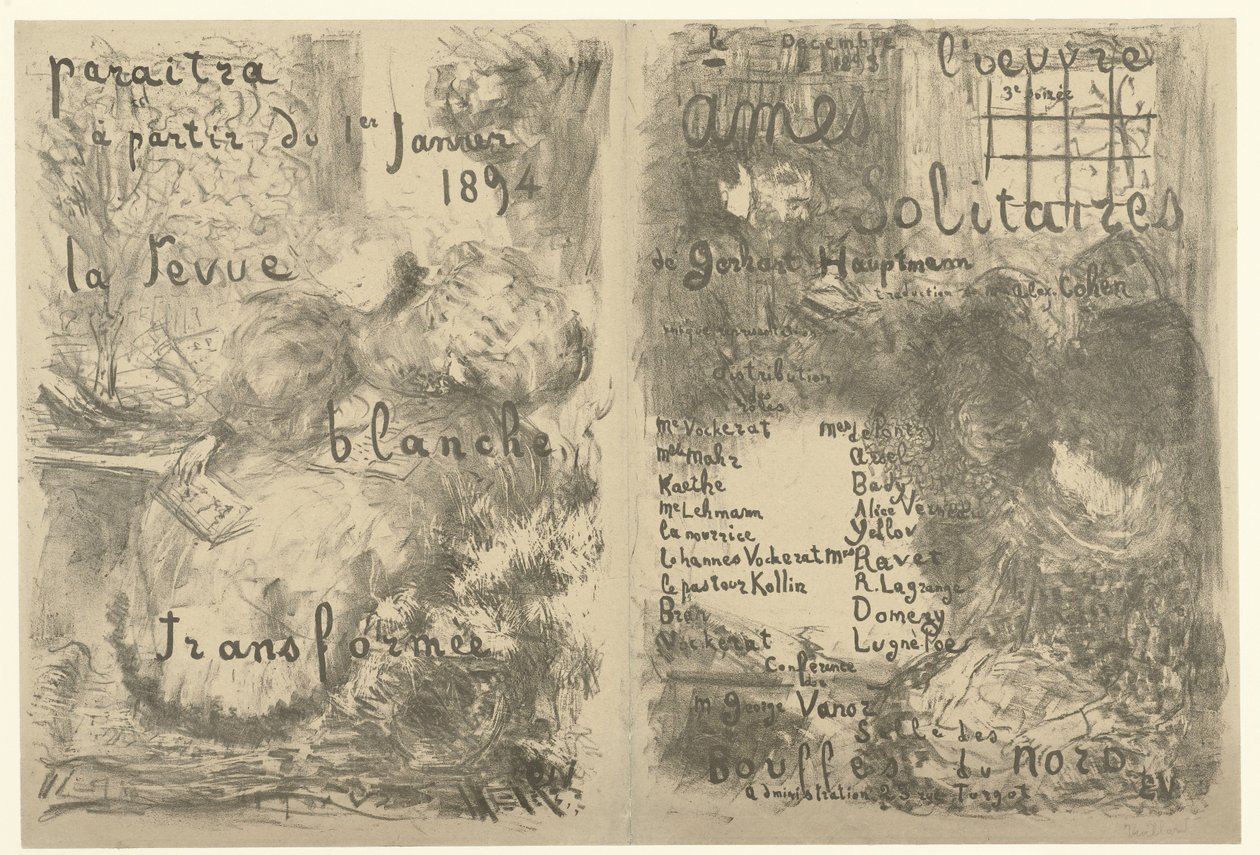 paraîtra
à partir du 1er Janvier
1894
la revue
blanche
transformée
EV
le Decembre
1893
l'oeuvre
3e soirée
âmes
Solitaires
de Gerhart Hauptmann
traduction de Mr Alex. Cohen
unique representation
distribution
des
rôles
Me Vockerat Mes de Pontry
Melle Mahr Arsel
Kaethe Bady
Me Lehmann Alice
la nourrice Yellov
Iohannes Vockerat Mrs Ravet
le pasteur Kollin R. Lagrange
Bran Domeny
Vockerat Lugné Poe
Conférence
de
M George Vanor
Salle des
Bouffes du NORD
administration 23 rue Turgot
EV
Vuillard